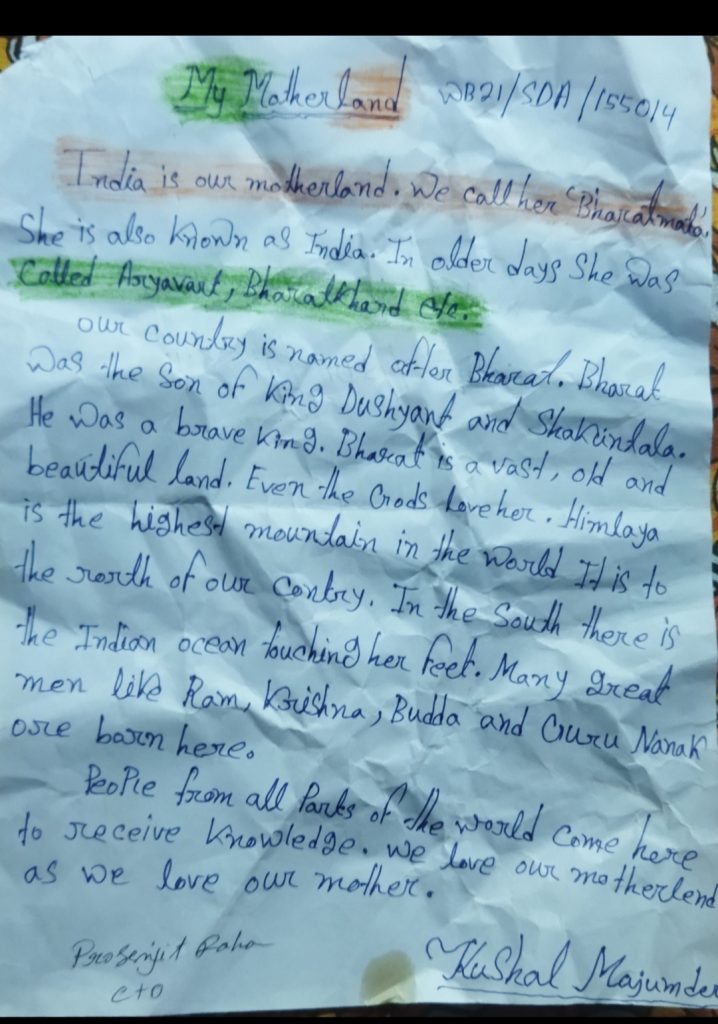 My Motherland WB21/SDA/155014
India is our motherland. We call her 'Bharatmata'.
She is also known as India. In older days She was
Called Aryavart, Bharatkhand etc.
our country is named after Bharat. Bharat
was the Son of King Dushyant and Shakuntala.
He was a brave King. Bharat is a vast, old and
beautiful land. Even the Gods Love her. Himlaya
is the highest mountain in the world It is to
the north of our Contry. In the South there is
the Indian ocean touching her feet. Many great
men like Ram, Krishna, Budda and Guru Nanak
are barn here.
People from all Parts of the world Come here
to receive Knowledge. we love our motherlend
as we love our mother.
Prosenjit Raha Kushal Majumder
CTO